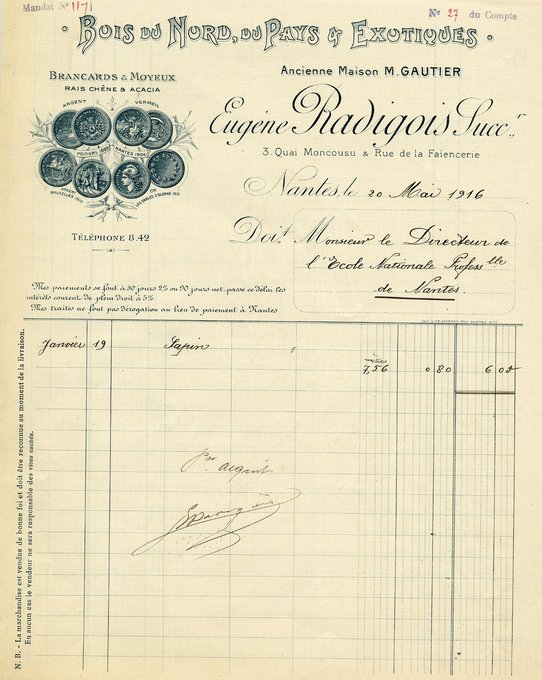 Mandat Nº 1171
Nº 27 du Compte
BOIS DU NORD, DU PAYS & EXOTIQUES
BRANCARDS & MOYEUX
RAIS CHÊNE & ACACIA
ARGENT VERMEIL
POITIERS 1899 NANTES 1904
ARGENT BRUXELLES 1910
OR LES SABLES D'OLONNE 1910
TÉLÉPHONE 8.42
Ancienne Maison M. GAUTIER
Eugène Radigois Succr.
3. Quai Moncousu & Rue de la Faïencerie
Nantes, le 20 Mai 1916
Doit Monsieur le Directeur de
l'Ecole Nationale Profess lle
de Nantes.
Mes paiements se font à 30 jours 2% ou 90 jours net, passé ce délai les
intérêts courent de plein droit à 5%
Mes traites ne font pas dérogation au lieu de paiement à Nantes
Janvier 19 Sapin 1
mètres
7,56 0.80 6.05
Pr acquit
N. B. - La marchandise est vendue de bonne foi et doit être reconnue au moment de la livraison.
En aucun cas le vendeur ne sera responsable des vices cachés.